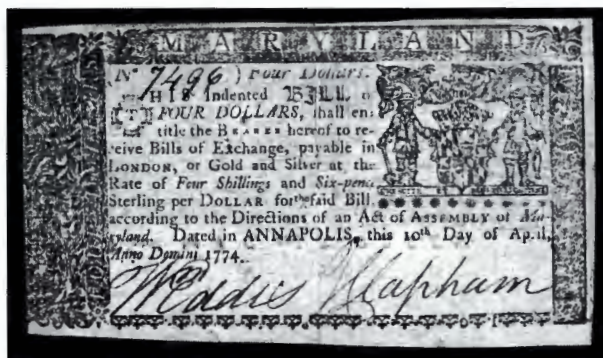 MARYLAND
(No 7496) Four Dollars.
THIS Indented BILL of
FOUR DOLLARS, shall en-
title the BEARER hereof to re-
ceive Bills of Exchange, payable in
LONDON, or Gold and Silver at the
Rate of Four Shillings and Six-pence
Sterling per DOLLAR for the said Bill,
according to the Directions of an Act of ASSEMBLY of Ma-
ryland. Dated in ANNAPOLIS, this 10th Day of April,
Anno Domini 1774.
W Eddis J Clapham